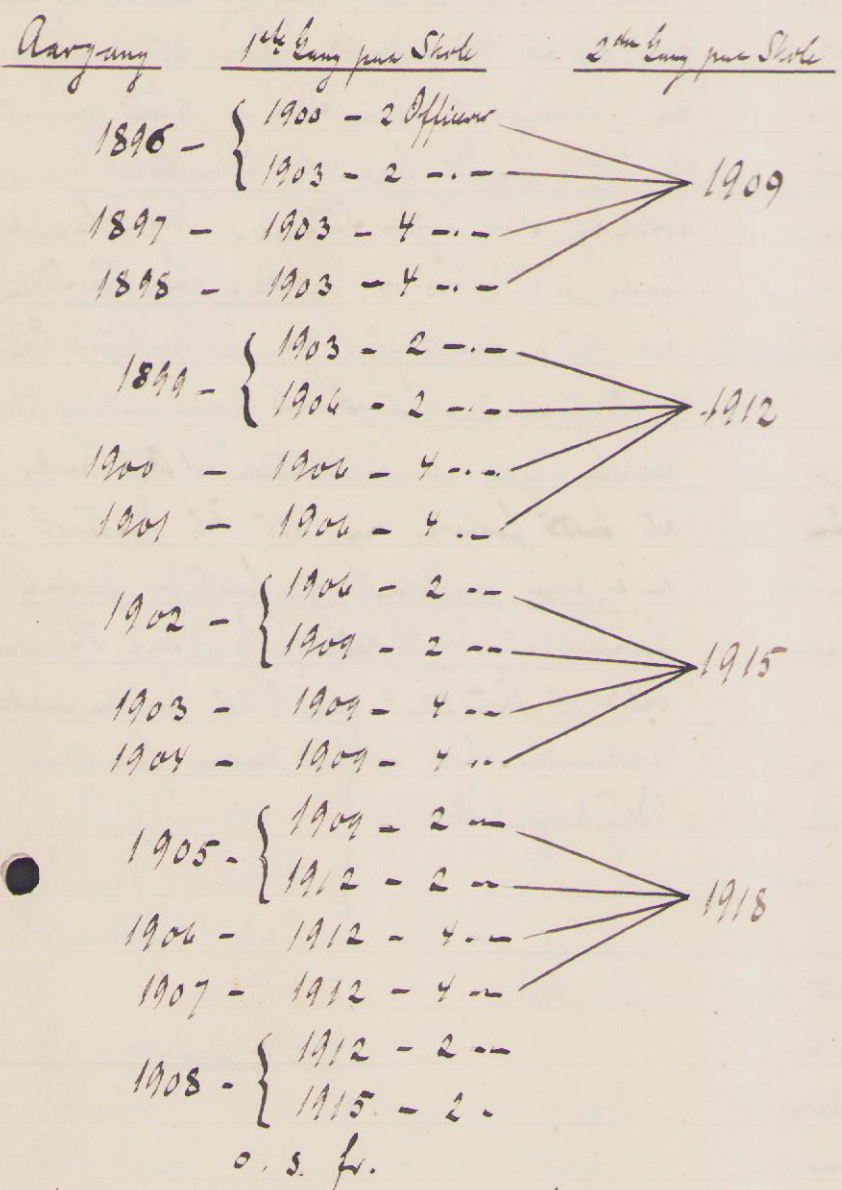 Aargang 1ste Gang paa Skole 2den Gang paa Skole
1896 - { 1900 - 2 Officerer
1903 - 2 -.- 1909
1897 - 1903 - 4 -.-
1898 - 1903 - 4 -.-
1899 - { 1903 - 2 -.-
1906 - 2 -.- 1912
1900 - 1906 - 4 -.-
1901 - 1906 - 4 -.-
1902 - { 1906 - 2 -.-
1909 - 2 -.- 1915
1903 - 1909 - 4 -.-
1904 - 1909 - 4 -.-
1905 - { 1909 - 2 -.-
1912 - 2 -.- 1918
1906 - 1912 - 4 -.-
1907 - 1912 - 4 -.-
1908 - { 1912 - 2 -.-
1915 - 2 -
o. s. fr.